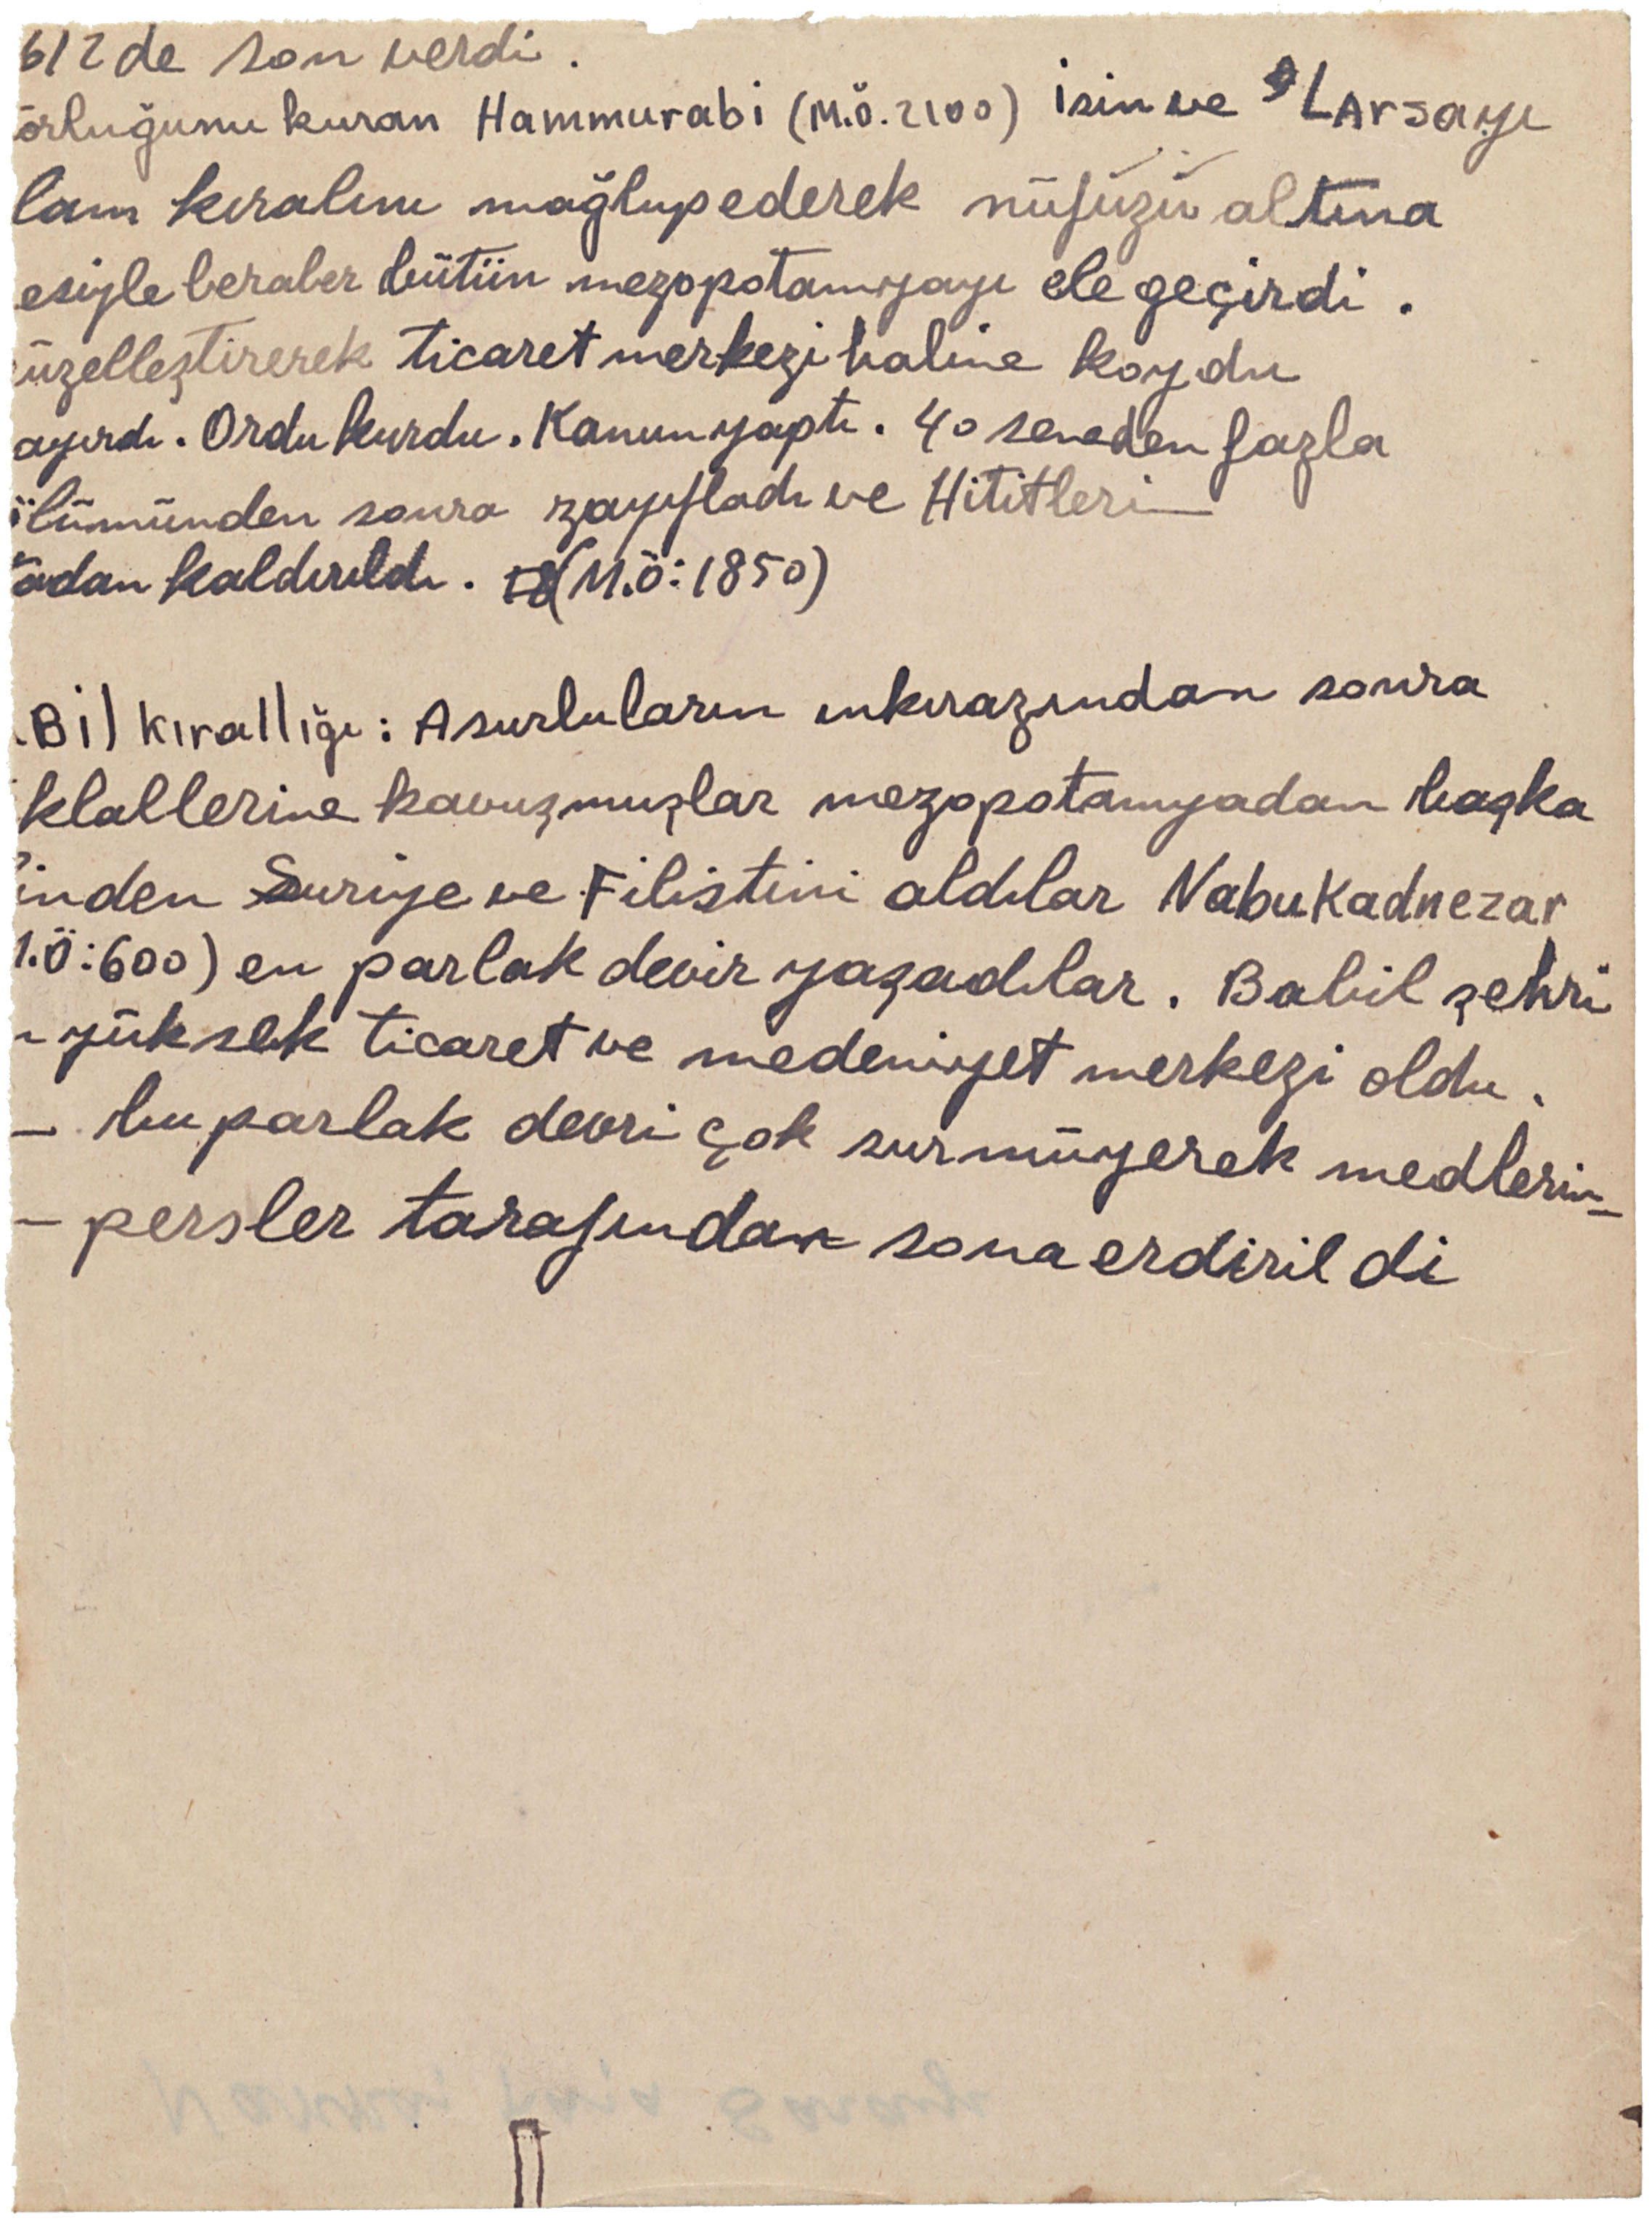 612 de son verdi.
örluğunu kuran Hammurabi (M.Ö. 2100) İsin ve LArsayı
lam kıralını mağlup ederek nüfüzü altına
esiyle beraber bütün mezopotamyayı ele geçirdi.
üzelleştirerek ticaret merkezi haline koydu
ayırdı. Ordu kurdu. Kanun yaptı. 40 seneden fazla
ölümünden sonra zayıfladı ve Hititleri
tadan kaldırıldı. (M.Ö: 1850)
Bil kırallığı: Asurluların inkırazından sonra
klallerine kavuşmuşlar mezopotamyadan başka
inden Suriye ve Filistini aldılar Nabukadnezar
.Ö: 600) en parlak devir yaşadılar. Babil şehri
yüksek ticaret ve medeniyet merkezi oldu.
— bu parlak devri çok surmüyerek medlerin
— persler tarafından sona erdirildi